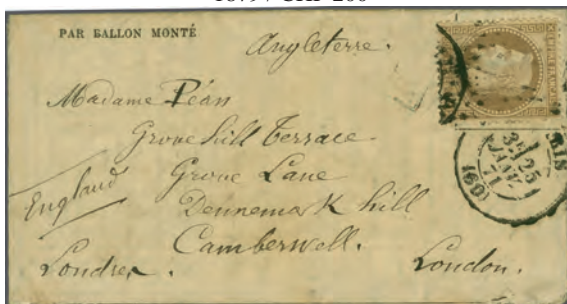 PAR BALLON MONTÉ
Angleterre.
Madame Péan
Grove hill Terrace
Grove Lane
England
Dennemark hill
Camberwell.
Londres.
London.
3E
25
JANV.
71
(60)